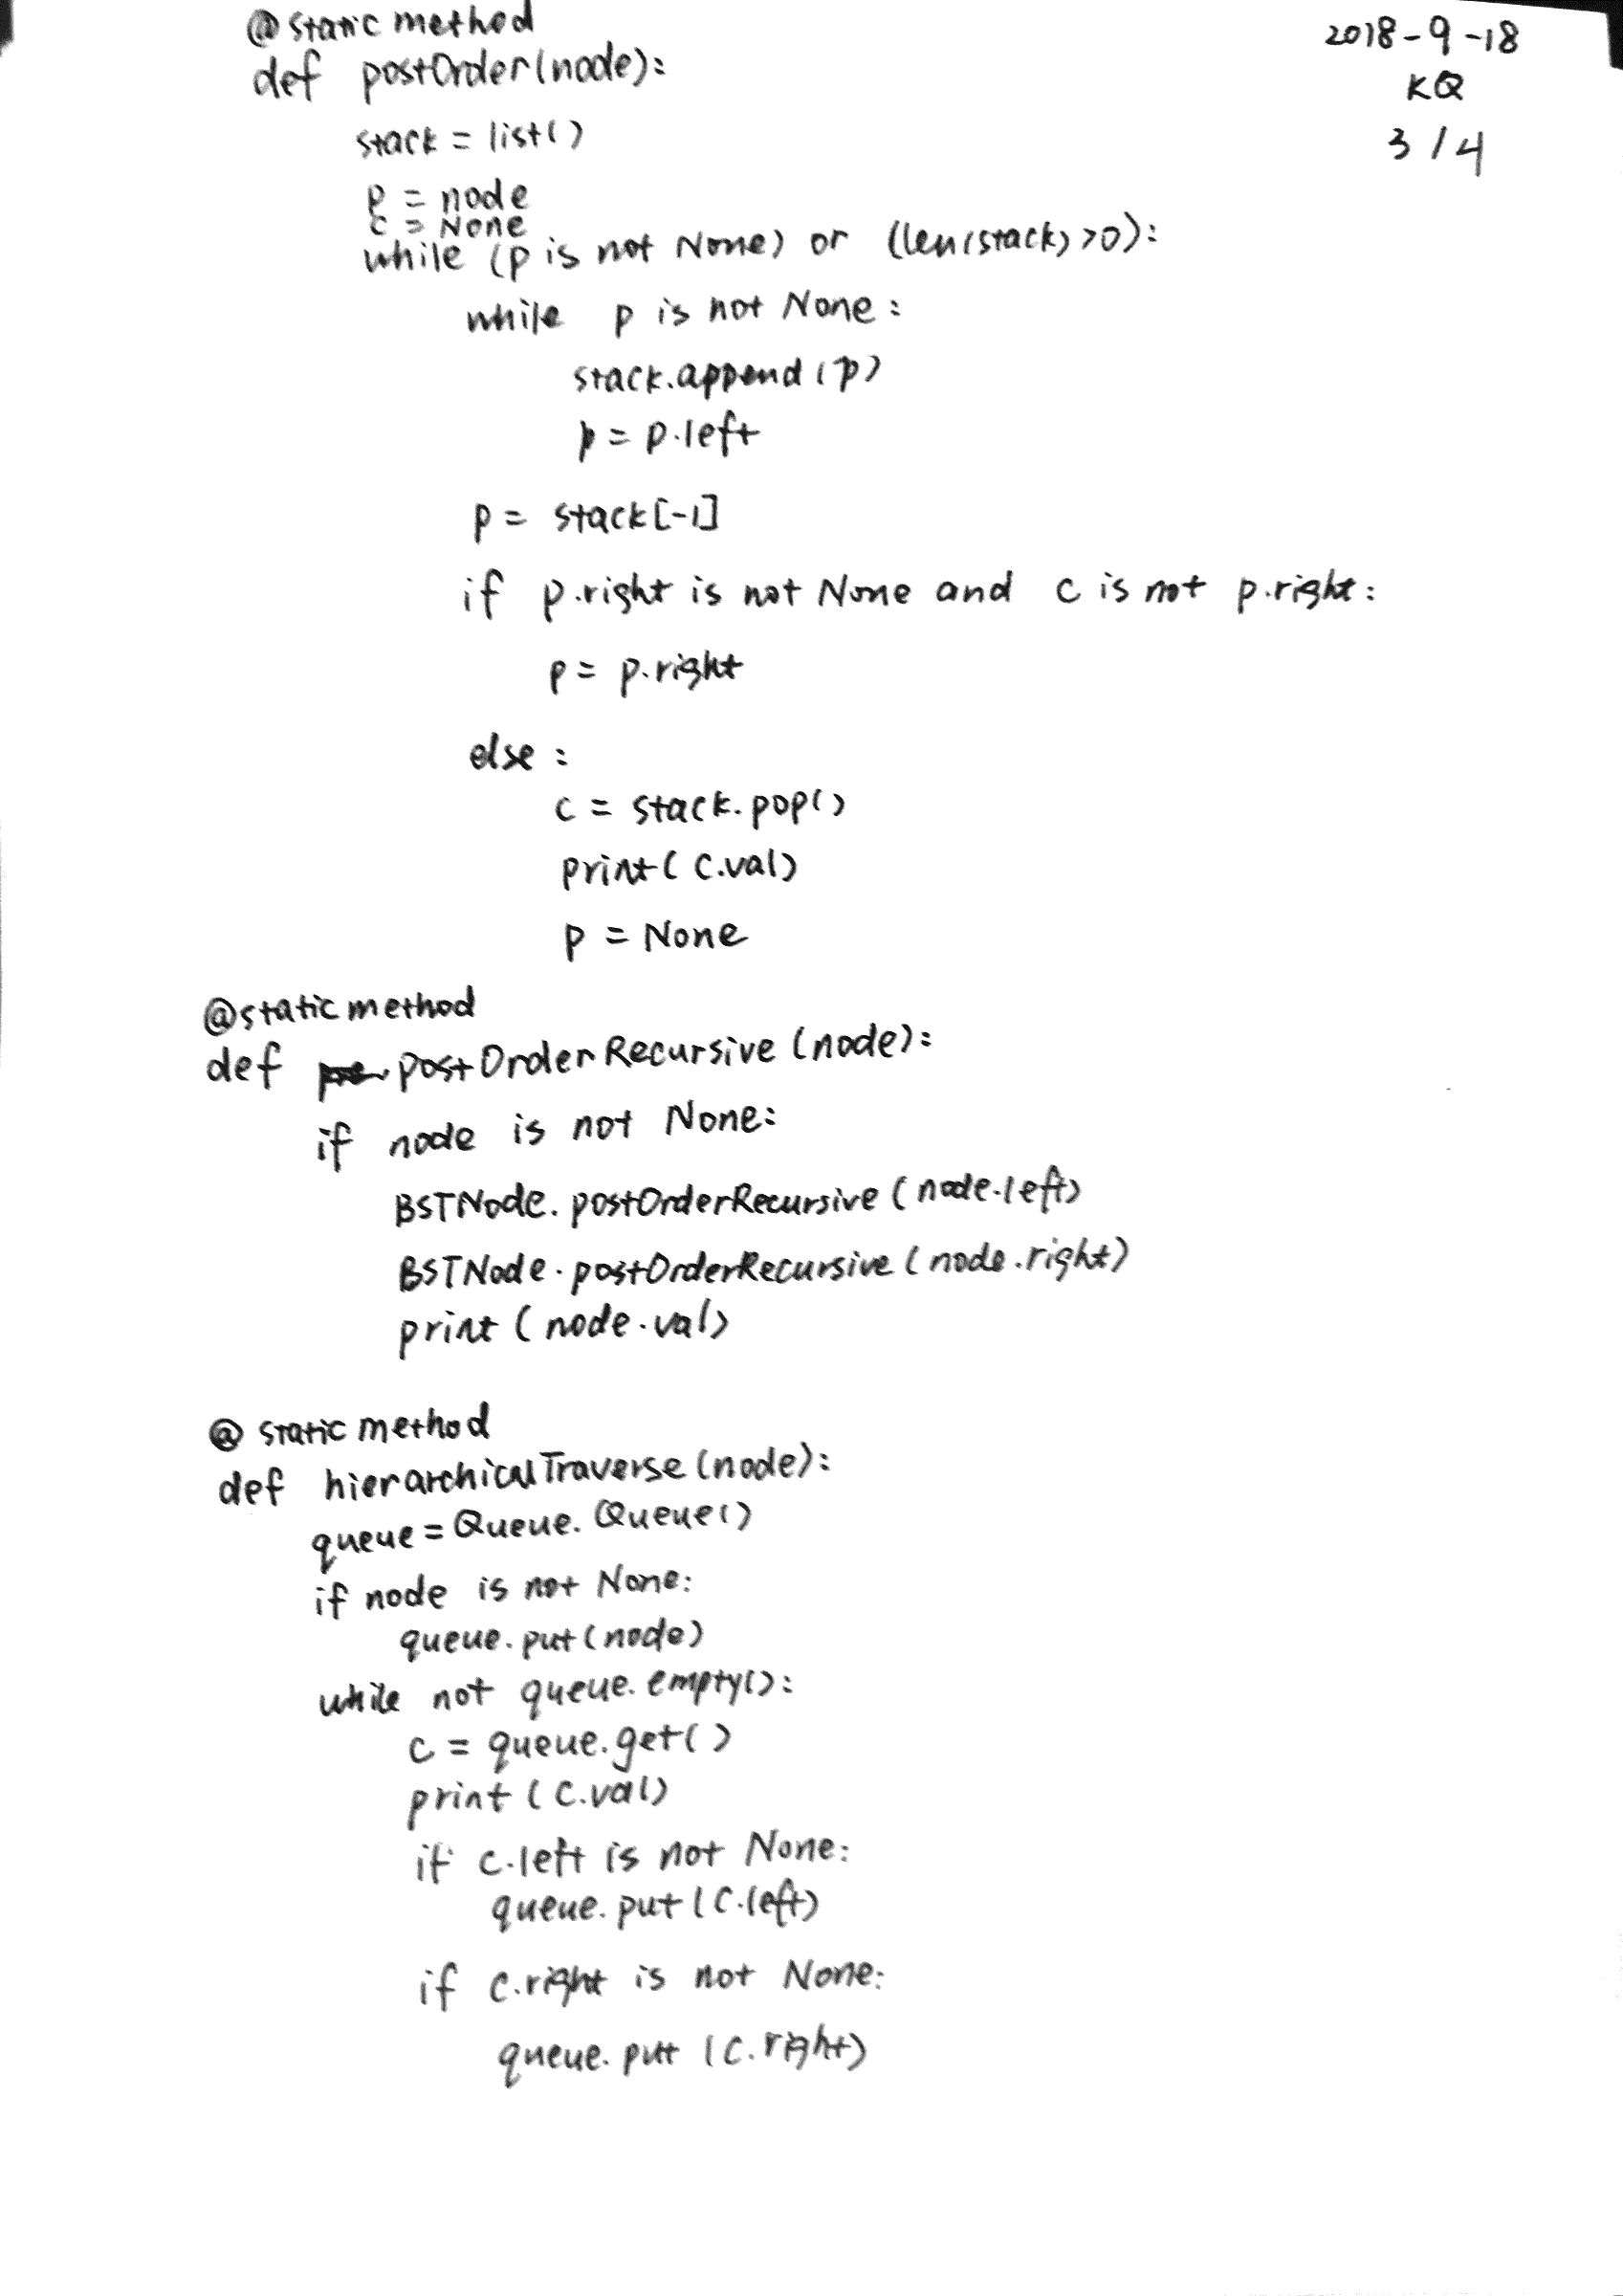 @staticmethod
def postOrder(node):
2018-9-18
KQ
3/4
stack = list()
p = node
c = None
while (p is not None) or (len(stack)>0):
while p is not None:
stack.append(p)
p = p.left
p = stack[-1]
if p.right is not None and c is not p.right:
p = p.right
else:
c = stack.pop()
print(c.val)
p = None
@staticmethod
def postOrderRecursive(node):
if node is not None:
BSTNode.postOrderRecursive(node.left)
BSTNode.postOrderRecursive(node.right)
print(node.val)
@staticmethod
def hierarchicalTraverse(node):
queue = Queue.Queue()
if node is not None:
queue.put(node)
while not queue.empty():
c = queue.get()
print(c.val)
if c.left is not None:
queue.put(c.left)
if c.right is not None:
queue.put(c.right)